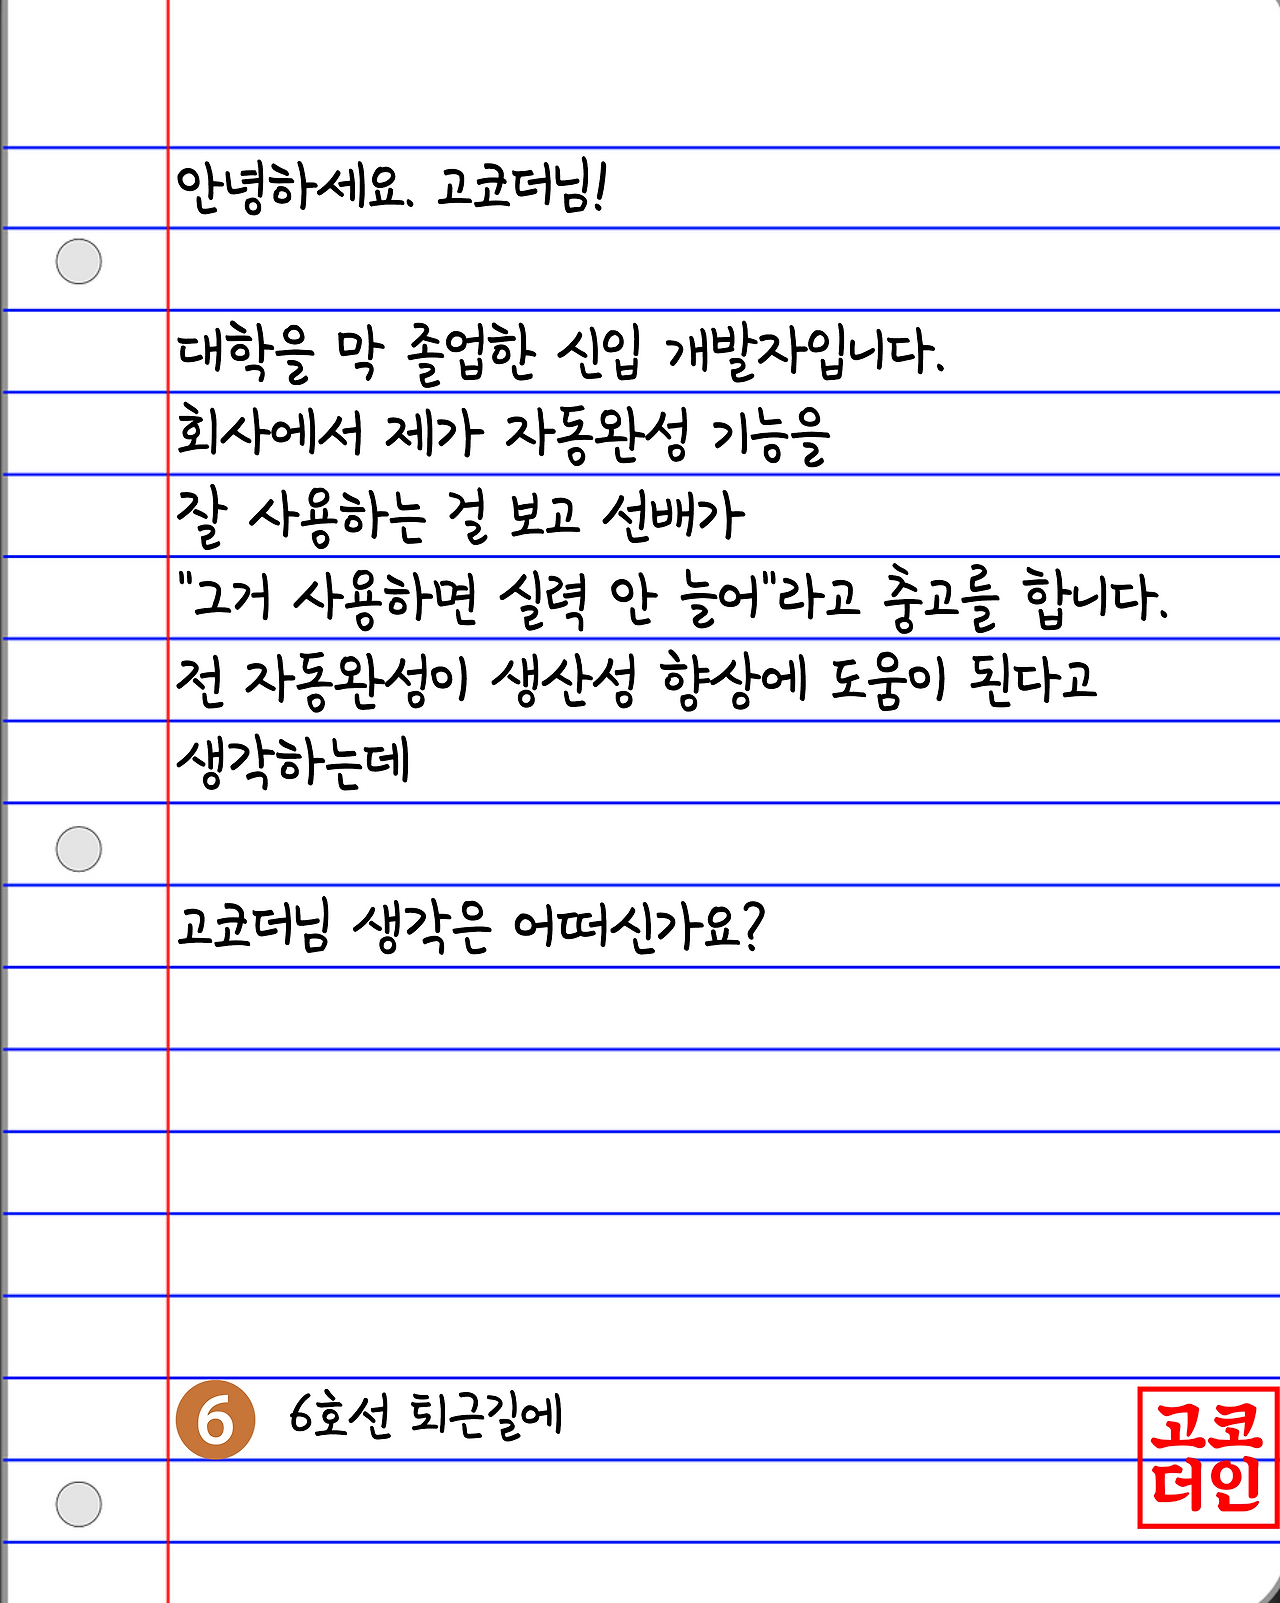 안녕하세요. 고코더님!
대학을 막 졸업한 신입 개발자입니다.
회사에서 제가 자동완성 기능을
잘 사용하는 걸 보고 선배가
"그거 사용하면 실력 안 늘어"라고 충고를 합니다.
전 자동완성이 생산성 향상에 도움이 된다고
생각하는데
고코더님 생각은 어떠신가요?
6 6호선 퇴근길에
고코
더인